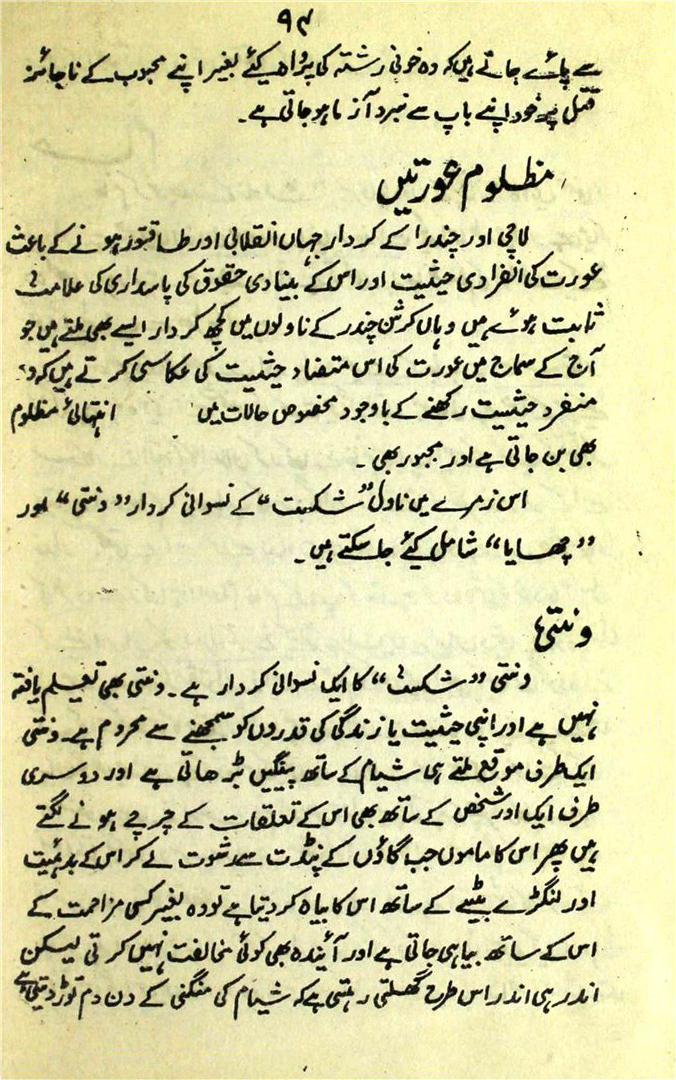 ۹۴
سے پائے جاتے ہیں کہ وہ خونی رشتہ کی پرواہ کیئے بغیر اپنے محبوب کے ناجائز
قتل پر خود اپنے باپ سے نبرد آزما ہو جاتی ہے۔
مظلوم عورتیں
لاچی اور چندرا کے کردار جہاں انقلابی اور طاقتور ہونے کے باعث
عورت کی انفرادی حیثیت اور اس کے بنیادی حقوق کی پاسداری کی علامت
ثابت ہوئے ہیں وہاں کرشن چندر کے ناولوں میں کچھ کردار ایسے بھی ملتے ہیں جو
آج کے سماج میں عورت کی اس متضاد حیثیت کی عکاسی کرتے ہیں کہ وہ
منفرد حیثیت رکھنے کے باوجود مخصوص حالات میں انتہائی مظلوم
بھی بن جاتی ہے اور مجبور بھی۔
اس زمرے میں ناول "شکست" کے نسوانی کردار "ونتی" اور
"چھایا" شامل کیئے جا سکتے ہیں۔
ونتی
ونتی "شکست" کا ایک نسوانی کردار ہے۔ ونتی بھی تعلیم یافتہ
نہیں ہے اور اپنی حیثیت یا زندگی کی قدروں کو سمجھنے سے محروم ہے۔ ونتی
ایک طرف موقع ملتے ہی شیام کے ساتھ پینگیں بڑھاتی ہے اور دوسری
طرف ایک اور شخص کے ساتھ بھی اس کے تعلقات کے چرچے ہونے لگتے
ہیں پھر اس کا ماموں جب گاؤں کے پنڈت سے رشوت لے کر اس کے بدہئیت
اور لنگڑے بیٹے کے ساتھ اس کا بیاہ کر دیتا ہے تو وہ بغیر کسی مزاحمت کے
اس کے ساتھ بیاہی جاتی ہے اور آئندہ بھی کوئی مخالفت نہیں کرتی لیکن
اندر ہی اندر اس طرح گھلتی رہتی ہے کہ شیام کی منگنی کے دن دم توڑ دیتی ہے